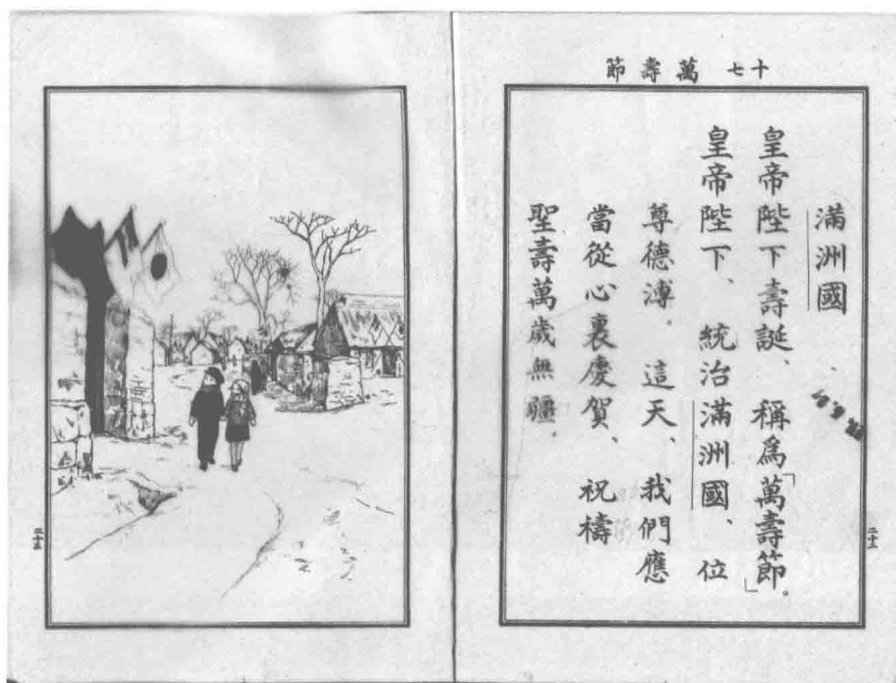 十七 萬壽節
滿洲國
皇帝陛下壽誕、稱爲「萬壽節」。
皇帝陛下、統治滿洲國、位
尊德溥．這天、我們應
當從心裏慶賀、祝禱
聖壽萬歲無疆．
二十三
二十三